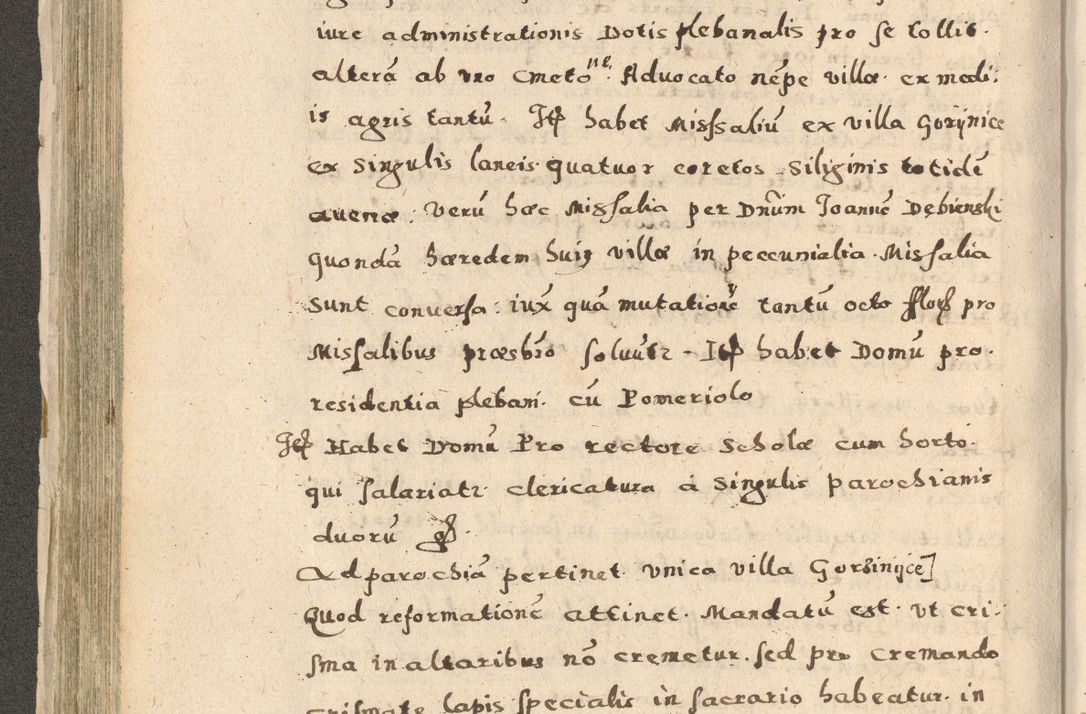 iure administrationis Dotis plebanalis pro se tollit.
alterã ab vno Cmetõne. Advocato nẽpe villæ. ex medi:
is agris tantũ. Itẽ habet Missaliũ ex villa Gorÿnice
ex singulis laneis quatuor coretos Siliginis totidẽ
avenæ. verũ hæc Missalia per Dnũm Joannẽ Dębienski
quondã hæredem huiꝰ villæ in peccunialia Missalia
sunt conversa: iux quã mutationẽ tantũ octo flor pro
Missalibus præsbrõ solvũtr. Itẽ habet Domũ pro.
residentia plebani. cũ Pomeriolo
Itẽ Habet Domũ Pro rectore Scholæ cum horto.
qui salariatr clericatura á Singulis parochianis
duorũ gß.
Ad parochiã pertinet unica villa Gorzinÿce]
Quod reformationẽ attinet. Mandatũ est. vt cri:
sma in altaribus nõ cremetur. sed pro cremando
crismate lapis specialis in sacrario habeatur. in